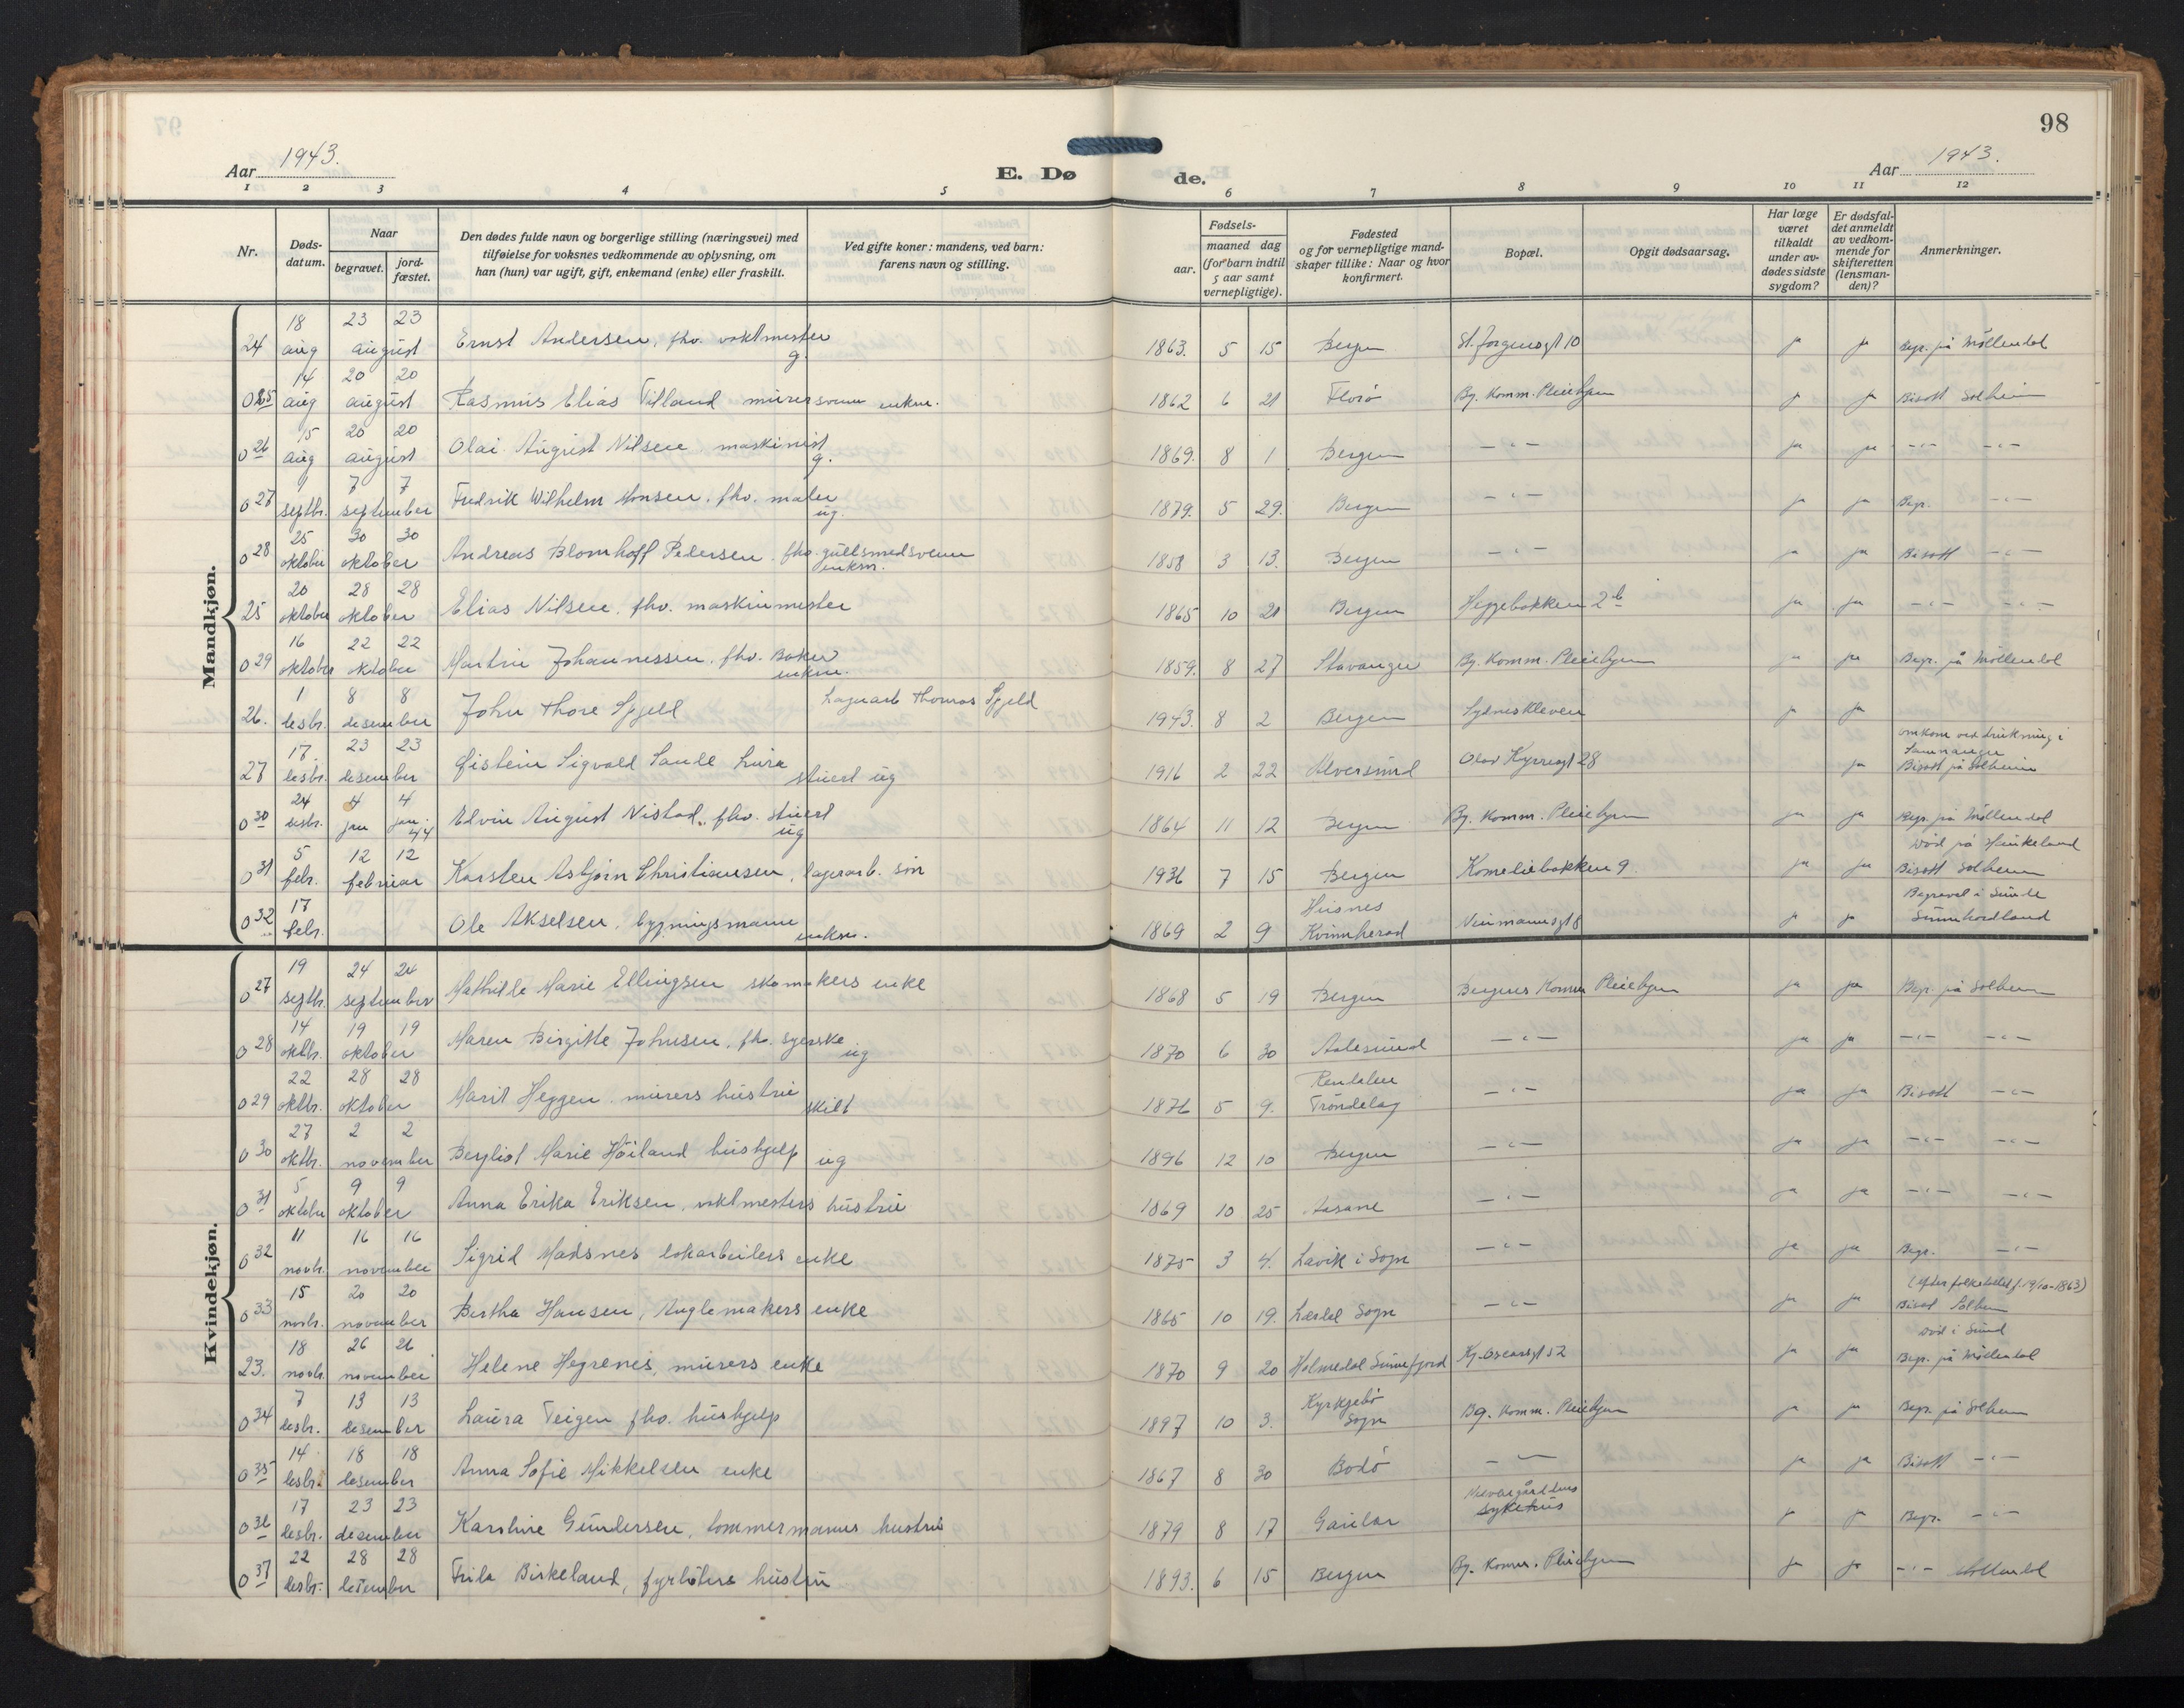 98
Aar 1943.
E. Dø de.
Aar 1943.
1 2 3 4 5 6 7 8 9 10 11 12
Nr.
Døds-datum.
Naar
begravet.
jord-fæstet.
Den dødes fulde navn og borgerlige stilling (næringsvei) med
tilføielse for voksnes vedkommende av oplysning, om
han (hun) var ugift, gift, enkemand (enke) eller fraskilt.
Ved gifte koner: mandens, ved barn:
farens navn og stilling.
Fødsels-
aar.
maaned dag
(for barn indtil
5 aar samt
vernepligtige).
Fødested
og for vernepligtige mand-
skaper tillike: Naar og hvor
konfirmert.
Bopæl.
Opgit dødsaarsag.
Har læge
været
tilkaldt
under av-
dødes sidste
sygdom?
Er dødsfal-
det anmeldt
av vedkom-
mende for
skifteretten
(lensman-
den)?
Anmerkninger.
Mandkjøn.
24 18 aug 23 23 august Ernst Andersen, fhv. vaktmester g. 1863. 5 15 Bergen St. Jørgensgt 10 ja ja Begr. på Møllendal
025 14 aug 20 20 august Rasmus Elias Titland murersvenn enkm. 1862 6 21 Florø Bg. Komm. Pleiehjem ja ja Bisatt Solheim
026 15 aug 20 20 august Olai August Nilsen maskinist g. 1869. 8 1 Bergen -"- ja ja -"- -"-
027 1 septbr. 7 7 september Fredrik Wilhelm Monsen. fhv. maler ug. 1879. 5 29. Bergen -"- ja ja Begr. -"-
028 25 oktober 30 30 oktober Andreas Blomhoff Pedersen. fhv. gullsmedsvenn enkm. 1858 3 13. Bergen -"- ja ja Bisatt -"-
25 20 oktober 28 28 oktober Elias Nilsen. fhv. maskinmester 1865 10 21 Bergen Heggebakken 2b ja ja -"- -"-
029 16 oktober 22 22 oktober Martin Johannessen. fhv. Baker enkm. 1859. 8 27 Stavanger Bg. Komm. Pleiehjem ja ja Begr. på Møllendal
26. 1 desbr. 8 8 desember John Thore Spjeld Lagerarb Thomas Spjeld 1943. 8 2 Bergen Sydneskleven ja ja
27 17. desbr. 23 23 desember Øistein Sigvald Sande Lura stuert ug 1916 2 22 Alversund Olav Kyrresgt 28 ja omkom ved drukning i
Samnanger
Bisatt på Solheim
030 24 desbr. 4 jan 4 jan. 44 Elvin August Nistad. fhv. stuert ug 1864 11 12 Bergen Bg. Komm. Pleiehjem ja ja Begr. på Møllendal
031 5 febr. 12 12 februar Karsten Asbjørn Christiansen, lagerarb. søn 1936 7 15 Bergen Komeliebakken 9. ja ja død på Haukeland
Bisatt Solheim
032 17 febr. Ole Akselsen, bygningsmann enkm. 1869 2 9 Husnes
Kvinnherad Neumannsgt 8 ja ja Begravet i Sunde
Sunnhordland
Kvindekjøn.
027 19 septbr. 24 24 september Mathilde Marie Ellingsen skomakers enke 1868 5 19 Bergen Bergens Komm Pleiehjem ja ja Begr. på Solheim
028 14 oktbr. 19 19 oktober Maren Birgitte Johnsen, fhv. syerske ug 1870 6 30 Aalesund -"- ja ja -"- -"-
029 22 oktbr. 28 28 oktober Marit Heggen. murers hustru skilt 1876 5 9. Rendalen
Trøndelag -"- ja ja Bisatt -"-
030 27 oktbr. 2 2 november Bergliot Marie Høiland hushjelp ug 1896 12 10 Bergen -"- ja ja -"- -"-
031 5 oktober 9 9 oktober Anna Erika Eriksen, vaktmesters hustru 1869 10 25 Aasane -"- ja ja -"- -"-
032 11 novbr. 16 16 november Sigrid Madsnes dokarbeiders enke 1875 3 4. Lavik i Sogn -"- ja ja Begr. -"-
033 15 novbr. 20 20 november Bertha Hansen, Anglemakers enke 1865 10 19. Lærdal Sogn -"- ja ja (efter folketallet f. 19/10-1863)
Bisat Solheim
23. 18 novbr. 26 26 november Helene Hegrenes, murers enke 1870 9 20 Holmedal Sunnfjord Kg. Oscarsgt 52 ja ja død i Sund
Begr. på Møllendal
034 7 desbr. 13 13 desember Laura Teigen fhv. hushjelp 1897 10 3. Kyrkjebø
Sogn Bg. Komm. Pleiehjem ja ja Begr. på Solheim
035 14 desbr. 18 18 desember Anna Sofie Mikkelsen enke 1867 8 30 Bodø -"- ja ja Bisatt -"-
036 17 desbr. 23 23 desember Karoline Gundersen, tømmermanns hustru 1879 8 17 Gaular Nevengårdens
sykehus ja ja Begr. -"-
037 22 desbr. 28 28 desember Frida Birkeland, fyrbøters hustru 1893. 6 15 Bergen Bg. Komm. Pleiehjem ja ja -"- Møllendal